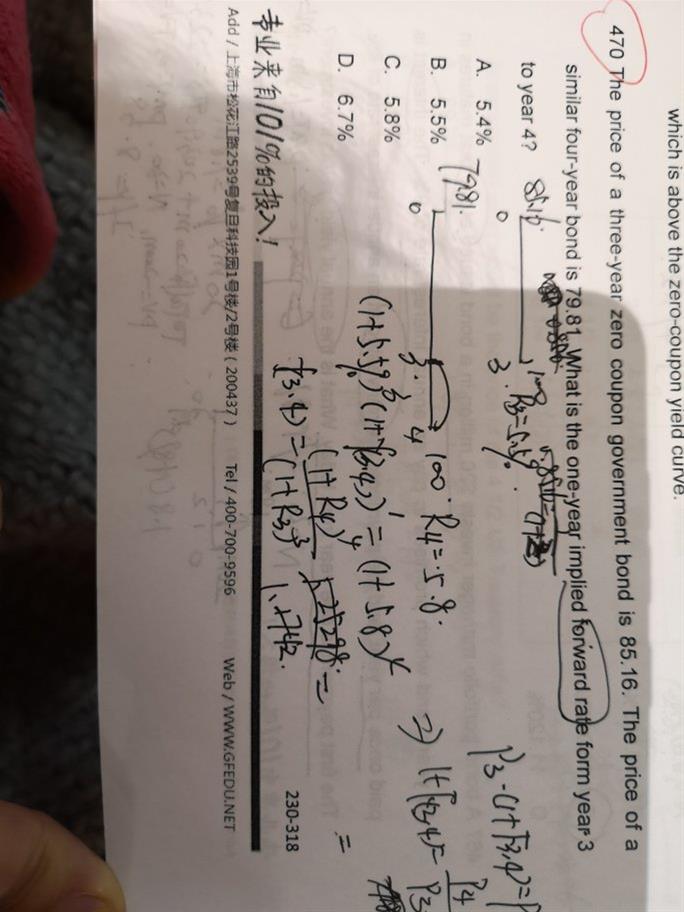 which is above the zero-coupon yield curve.
470 The price of a three-year zero coupon government bond is 85.16. The price of a
similar four-year bond is 79.81. What is the one-year implied forward rate form year 3
to year 4?
85.16.
0
3.
100
R3=5.5%.
A. 5.4%
79.81.
B. 5.5%
0
3.
4
100.
R4=5.8.
C. 5.8%
D. 6.7%
(1+5.5%)³(1+f(3,4))¹=(1+5.8)⁴
f3,4)=(1+R4)⁴
(1+R3)³
1.25298
1.1742.
=
230-318
专业来自101%的投入！
Add / 上海市松花江路2539号复旦科技园1号楼/2号楼 ( 200437 ) Tel / 400-700-9596 Web / WWW.GFEDU.NET